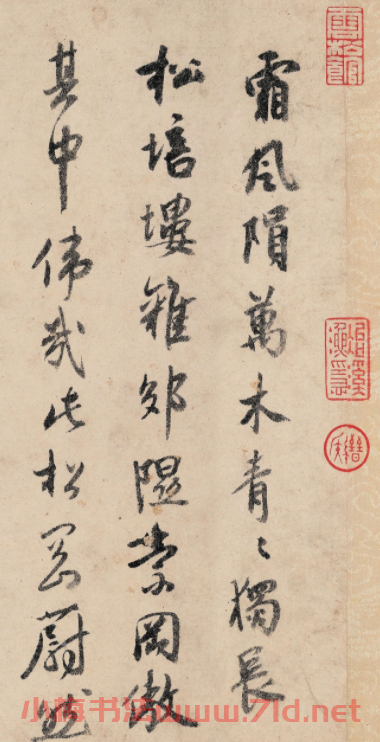 霜風隕萬木青〻獨長
松培塿雜郊隰崇岡傲
其中偉哉此松岡蔚然
小梅书法www.7ld.net